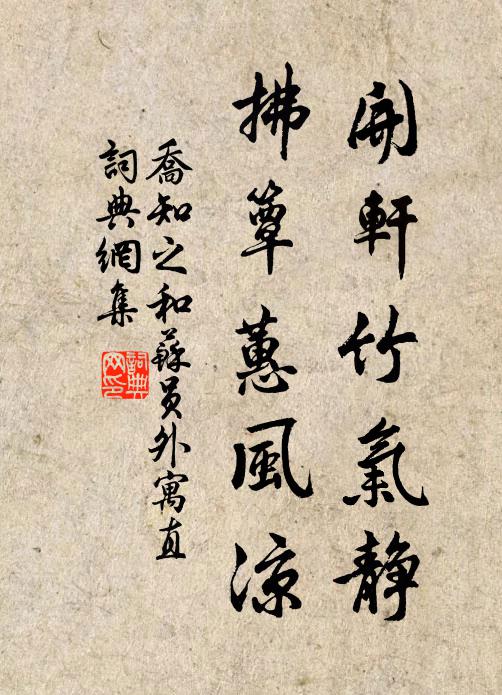 開軒竹氣静
拂簟蕙風涼
喬知之和蘇員外寓直
詞典網集
詞典
网印